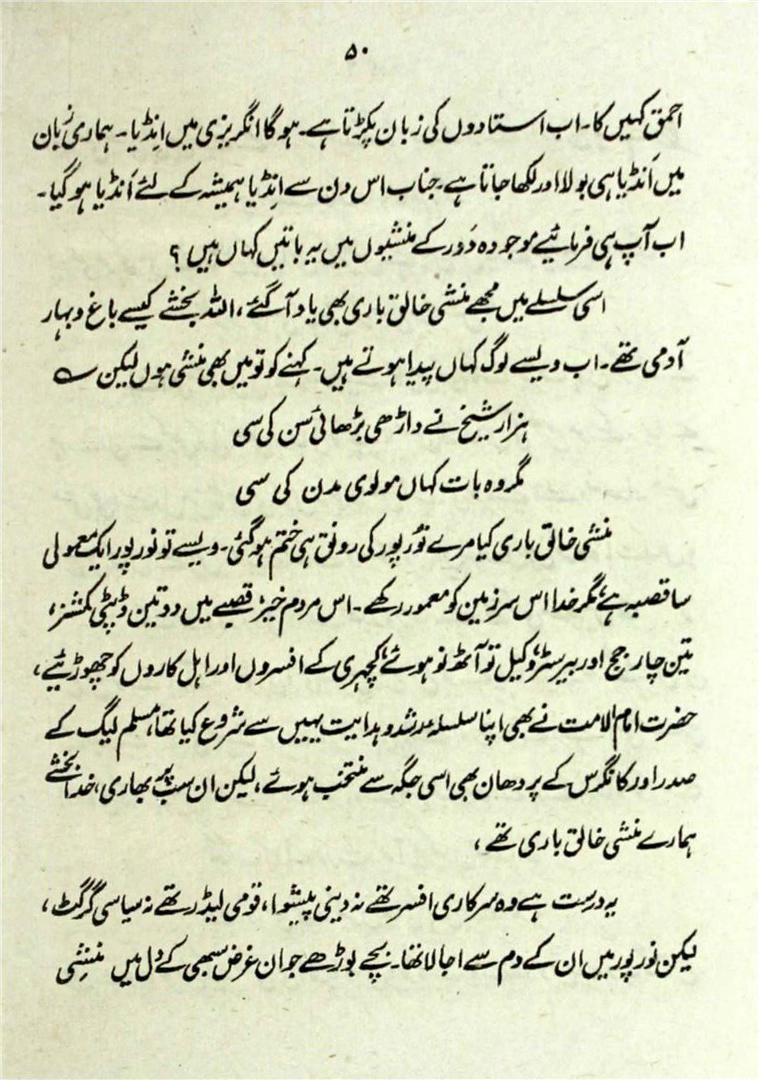 ۵۰
احمق کہیں کا۔ اب استادوں کی زبان پکڑتا ہے۔ ہوگا انگریزی میں اِنڈیا۔ ہماری زبان
میں اَنڈیا ہی بولا اور لکھا جاتا ہے۔ جناب اس دن سے اِنڈیا ہمیشہ کے لئے اَنڈیا ہو گیا۔
اب آپ ہی فرمائیے موجودہ دَور کے منشیوں میں یہ باتیں کہاں ہیں ؟
اسی سلسلے میں مجھے منشی خالق باری بھی یاد آ گئے، اللہ بخشے کیسے باغ و بہار
آدمی تھے۔ اب ویسے لوگ کہاں پیدا ہوتے ہیں۔ کہنے کو تو میں بھی منشی ہوں لیکن ؎
ہزار شیخ نے داڑھی بڑھائی سَن کی سی
مگر وہ بات کہاں مولوی مدن کی سی
منشی خالق باری کیا مرے نُور پور کی رونق ہی ختم ہو گئی۔ ویسے تو نور پور ایک معمولی
سا قصبہ ہے مگر خدا اس سرزمین کو معمور رکھے۔ اس مردم خیز قصبے میں دو تین ڈپٹی کمشنر،
تین چار جج اور بیرسٹر، وکیل تو آٹھ نو ہوئے، کچہری کے افسروں اور اہل کاروں کو چھوڑئیے،
حضرت امام الامت نے بھی اپنا سلسلہ رشد و ہدایت یہیں سے شروع کیا تھا، مسلم لیگ کے
صدر اور کانگرس کے پردھان بھی اسی جگہ سے منتخب ہوئے، لیکن ان سب پر بھاری، خدا بخشے
ہمارے منشی خالق باری تھے ،
یہ درست ہے وہ سرکاری افسر تھے نہ دینی پیشوا، قومی لیڈر تھے نہ سیاسی گرگٹ،
لیکن نور پور میں ان کے دم سے اجالا تھا۔ بچے بوڑھے جوان غرض سبھی کے دل میں منشی